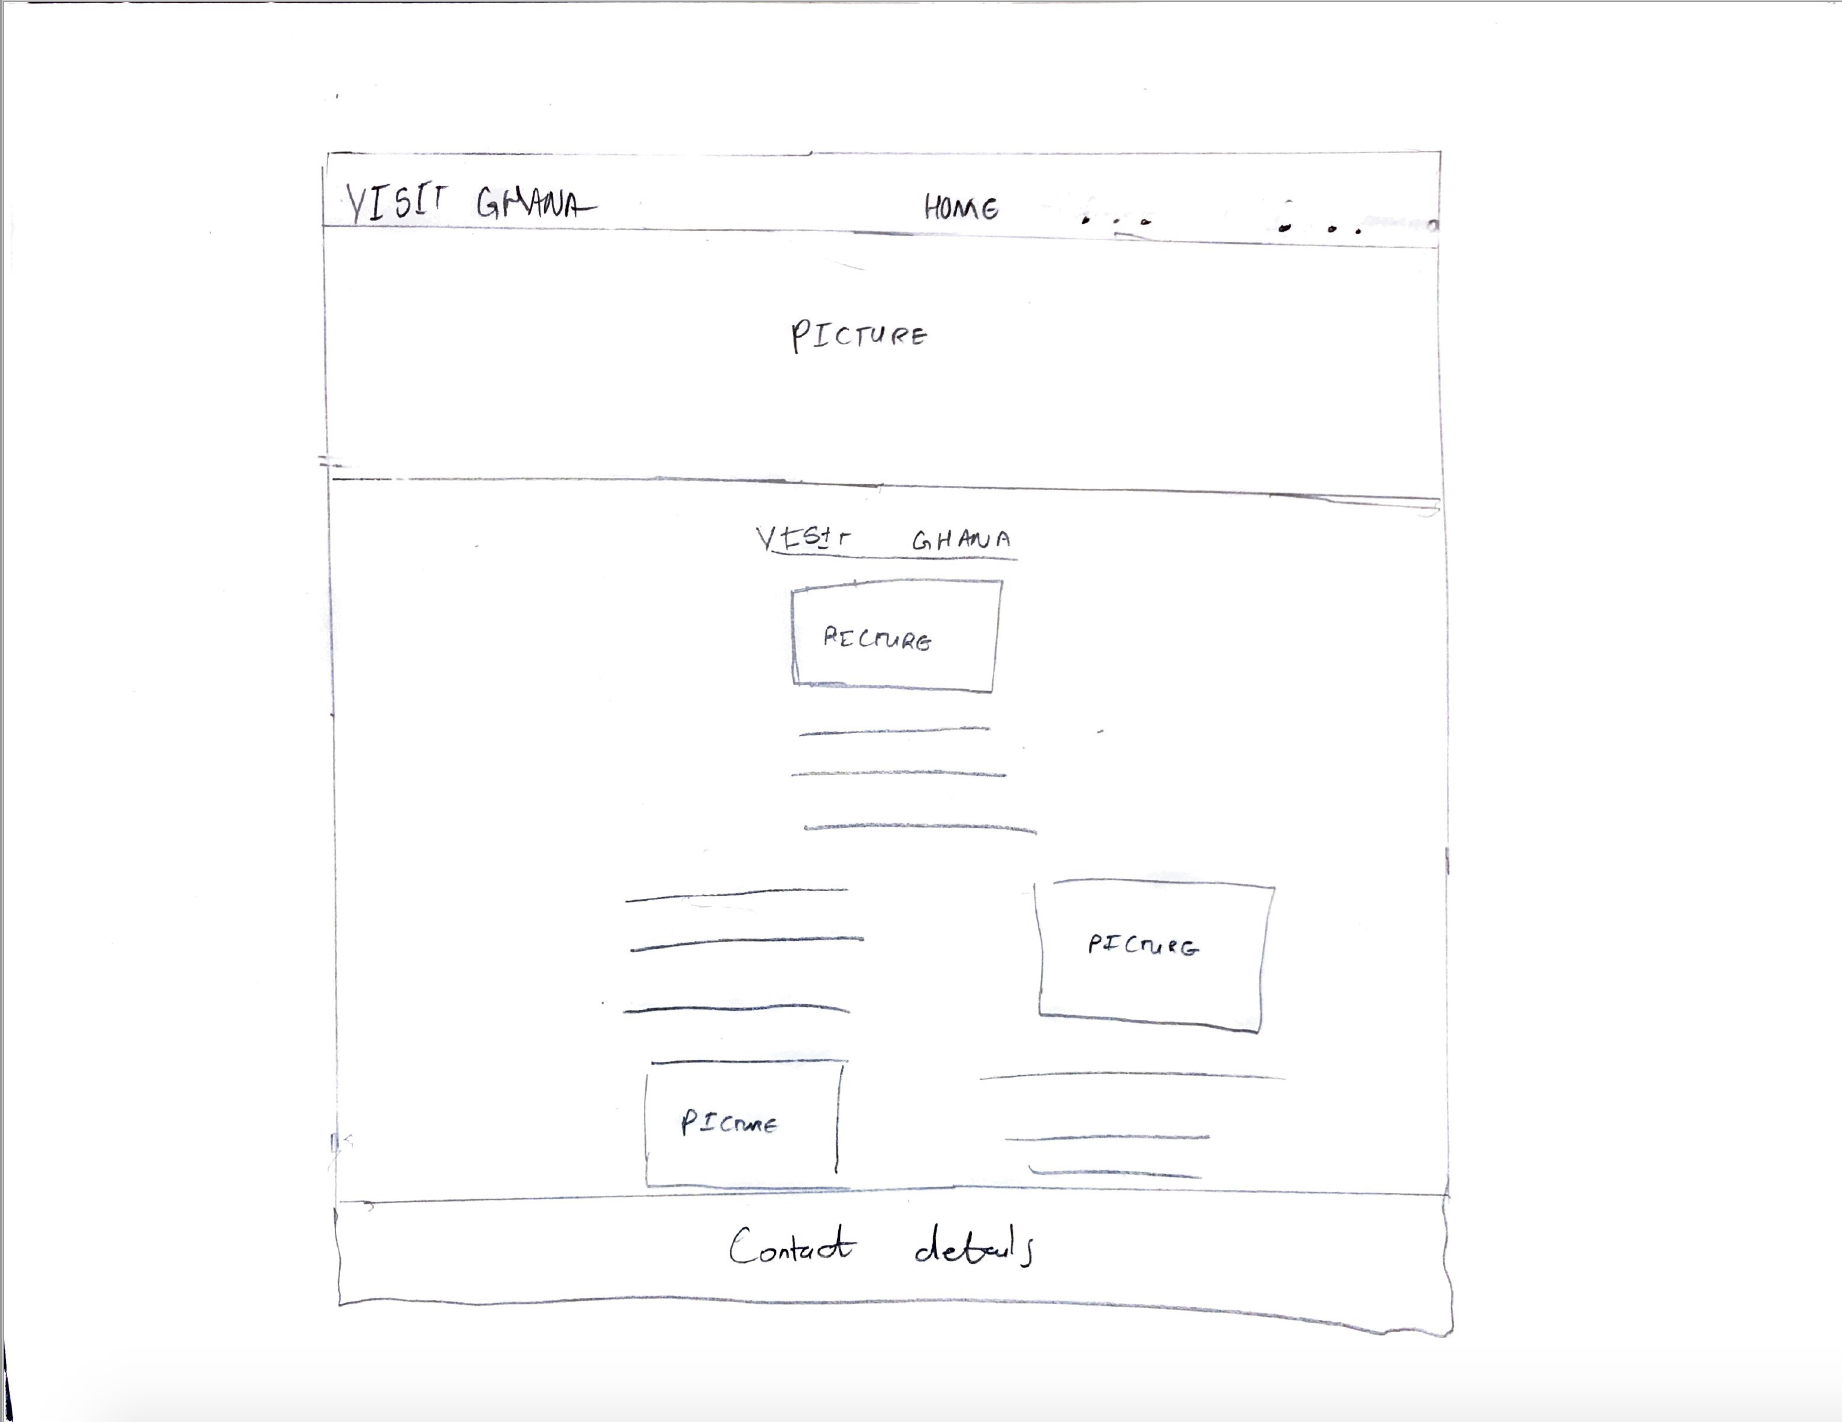 VISIT GHANA HOME ... ...
PICTURE
VISIT GHANA
PICTURE
PICTURE
PICTURE
Contact details